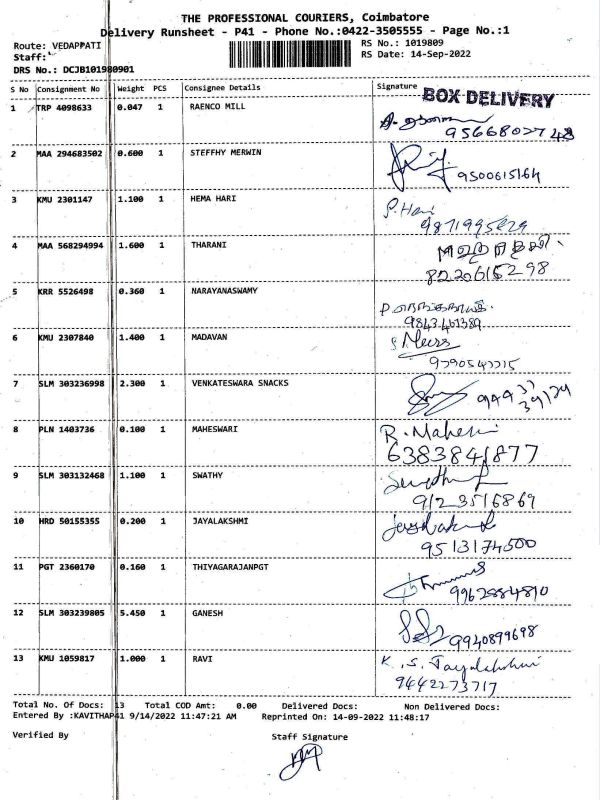 THE PROFESSIONAL COURIERS, Coimbatore
Delivery Runsheet - P41 - Phone No.:0422-3505555 - Page No.:1
Route: VEDAPPATI RS No.: 1019809
Staff: RS Date: 14-Sep-2022
DRS No.: DCJB101980901
S No Consignment No Weight PCS Consignee Details Signature
BOX DELIVERY
1 TRP 4098633 0.047 1 RAENCO MILL
9566802748
2 MAA 294683502 0.600 1 STEFFHY MERWIN
9500615164
3 KMU 2301147 1.100 1 HEMA HARI P. Hari
4 MAA 568294994 1.600 1 THARANI
8220615298
5 KRR 5526498 0.360 1 NARAYANASWAMY
9843461389
6 KMU 2307840 1.400 1 MADAVAN
7 SLM 303236998 2.300 1 VENKATESWARA SNACKS
8 PLN 1403736 0.100 1 MAHESWARI
6383841877
9 SLM 303132468 1.100 1 SWATHY
9123516869
10 HRD 50155355 0.200 1 JAYALAKSHMI
9513174500
11 PGT 2360170 0.160 1 THIYAGARAJANPGT
9962884810
12 SLM 303239805 5.450 1 GANESH
9940899698
13 KMU 1059817 1.000 1 RAVI K. S. Jayalakshmi
9442273717
Total No. Of Docs: 13 Total COD Amt: 0.00 Delivered Docs: Non Delivered Docs:
Entered By :KAVITHAP41 9/14/2022 11:47:21 AM Reprinted On: 14-09-2022 11:48:17
Verified By Staff Signature